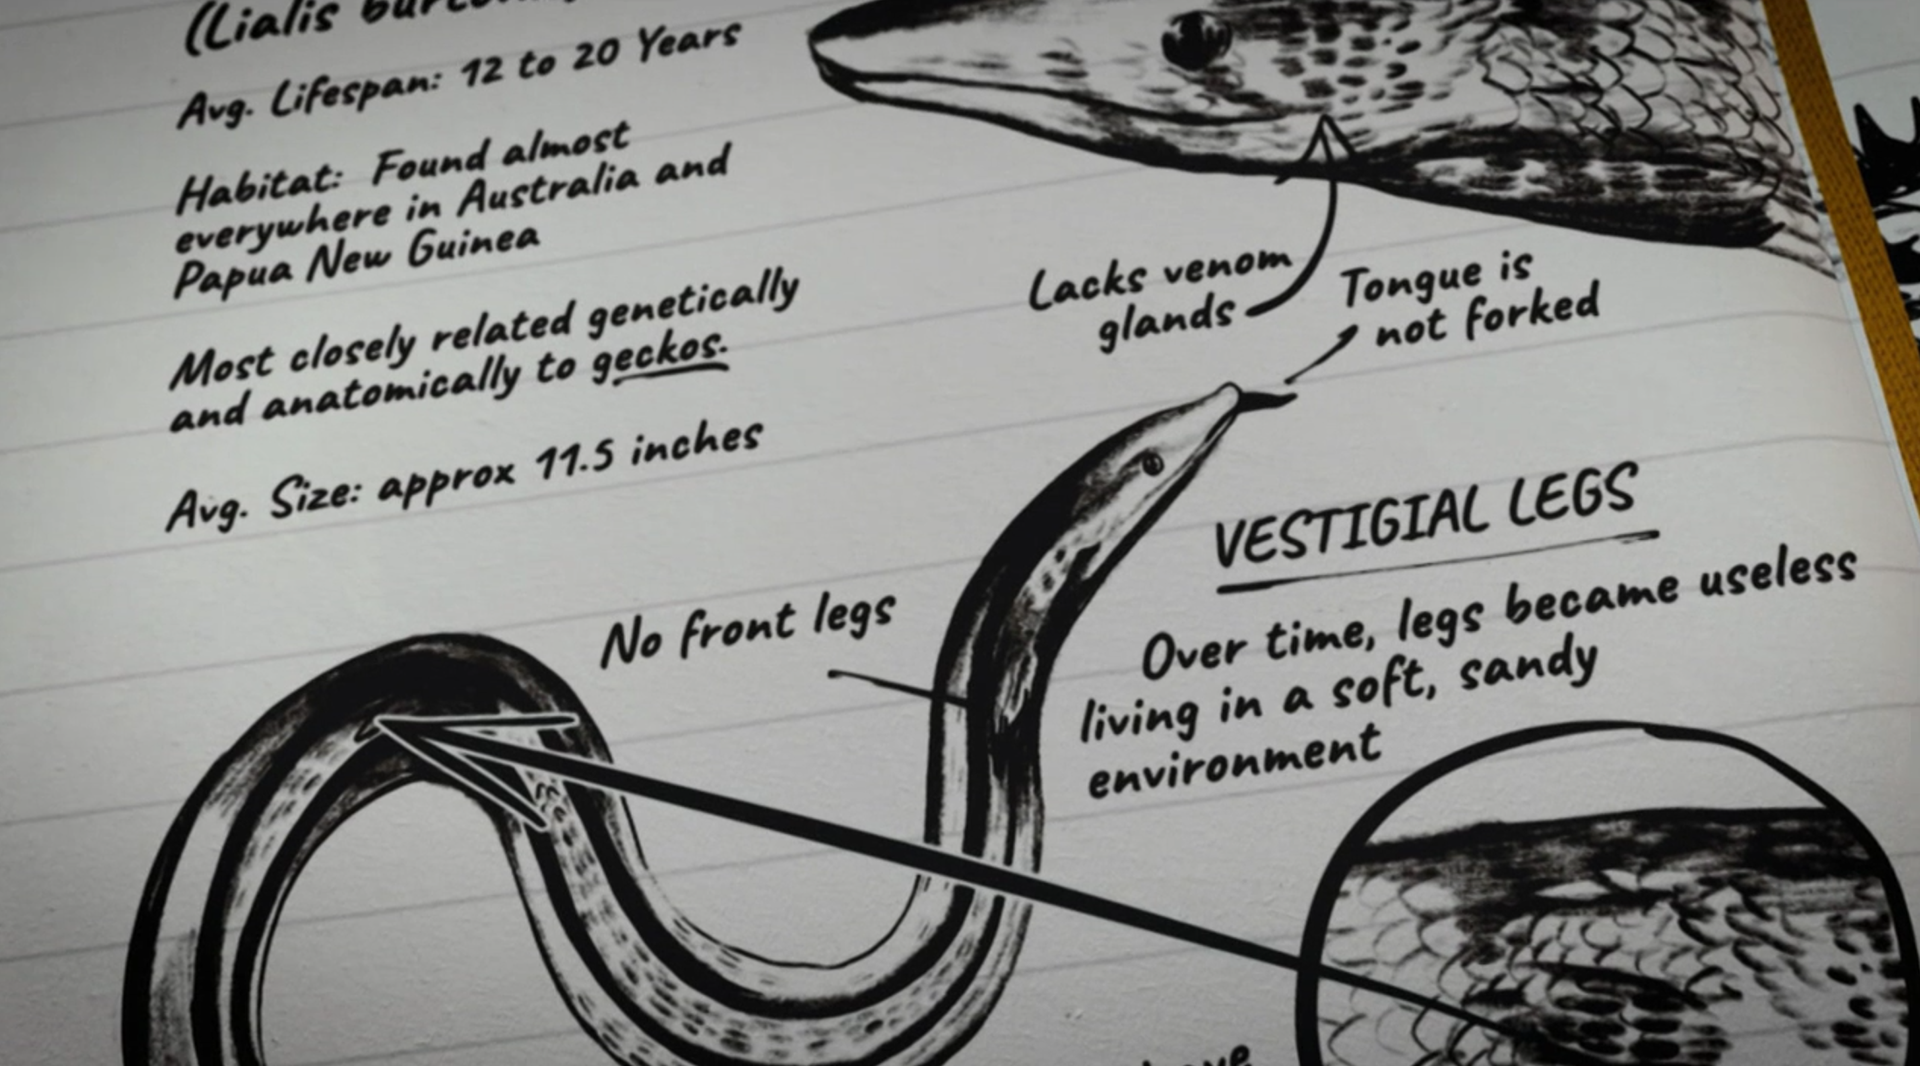 (Lialis
Avg. Lifespan: 12 to 20 Years
Habitat: Found almost
everywhere in Australia and
Papua New Guinea
Most closely related genetically
and anatomically to geckos.
Avg. Size: approx 11.5 inches
Lacks venom
glands
Tongue is
not forked
No front legs
VESTIGIAL LEGS
Over time, legs became useless
living in a soft, sandy
environment